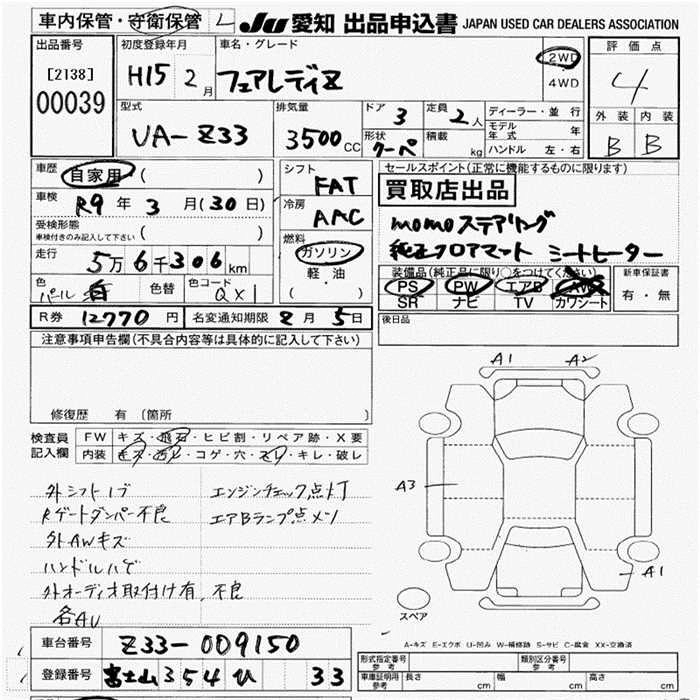 車内保管・守衛保管 L JU 愛知 出品申込書 JAPAN USED CAR DEALERS ASSOCIATION
出品番号
[2138]
00039
初度登録年月
H15 2月
車名・グレード
フェアレディZ
2WD
4WD
評価点
4
外装 内装
B B
型式
UA-Z33
排気量
3500cc
ドア 3
形状 クーペ
定員 2人
積載 kg
ディーラー・並行
モデル年式 年
ハンドル 左・右
車歴
自家用 ( )
車検
R9年3月(30日)
受検形態
車検付きのみ記入して下さい ( )
走行
5万6千306km
色 パール白
色替
色コード QX1
シフト
FAT
冷房
AAC
燃料
ガソリン
軽・油
( )
セールスポイント(正常に機能するものに限ります)
買取店出品
momoステアリング
純正フロアマット シートヒーター
装備品(純正品に限り○をつけてください)
PS PW エアB AW
SR ナビ TV カワシート
新車保証書
有・無
R券 12770円
名変通知期限 2月5日
後日品
注意事項申告欄(不具合内容等は具体的に記入して下さい)
修復歴 有 〔箇所 〕
検査員記入欄
FW キズ・飛石・ヒビ割・リペア跡・X要
内装 キズ・汚レ・コゲ・穴・スレ・キレ・破レ
外シフトノブ
Rゲートダンパー不良
外AWキズ
ハンドルハゲ
外オーディオ取付け有、不良
各AU
エンジンチェック点灯
エアBランプ点メツ
A1 A2
A3
A1
スペア
A-キズ E-エクボ U-凹み W-補修跡 S-サビ C-腐食 XX-交換済
車台番号 Z33-009150
登録番号 富士山354ひ 33
形式指定番号 参考
類別区分番号 参考
車庫証明用 参考 長さ cm 幅 cm 高さ cm